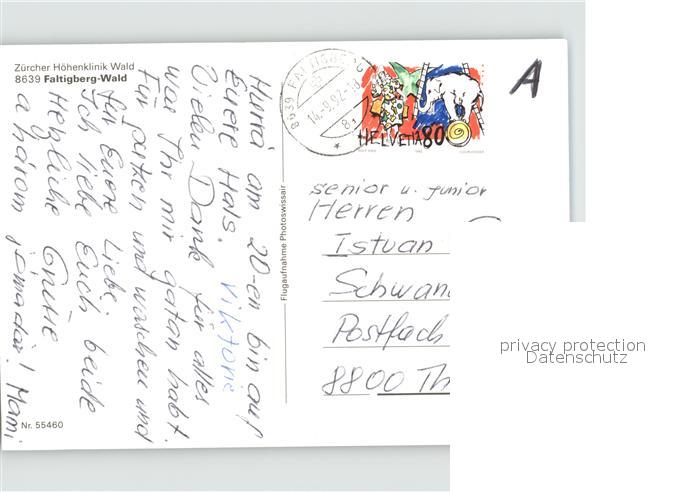 Zürcher Höhenklinik Wald
8639 Faltigberg-Wald
Hurrá am 20-en bin auf
Euere Hals. Viktorie
Vielen Dank für alles
was Ihr mir getan habt.
Für putzen und waschen und
für Euere Liebe.
Ich liebe Euch beide
Herzliche Grüsse
a három jómadár! Mami
Nr. 55460
Flugaufnahme Photoswissair
8639 FALTIGBERG
14.-9.92-18
HELVETIA 80
A
senior u. junior
Herren
Istvan
Schwan
Postfach
8800 Th
privacy protection
Datenschutz